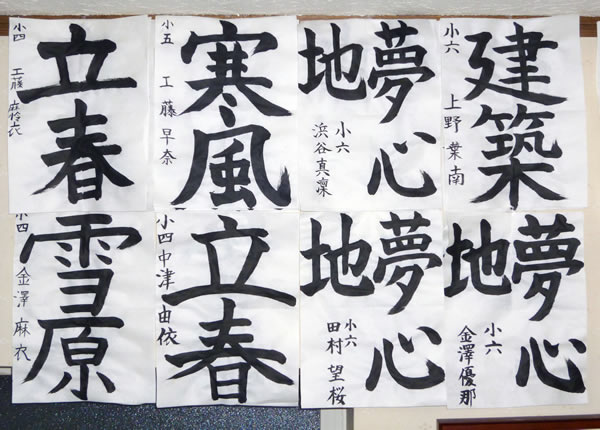 立春
小四 工藤 麻怜衣
寒風
小五 工藤早奈
夢心地
小六 浜谷真凜
建築
小六 上野葉南
雪原
小四 金澤麻衣
立春
小四 中津由依
夢心地
小六 田村望桜
夢心地
小六 金澤優那